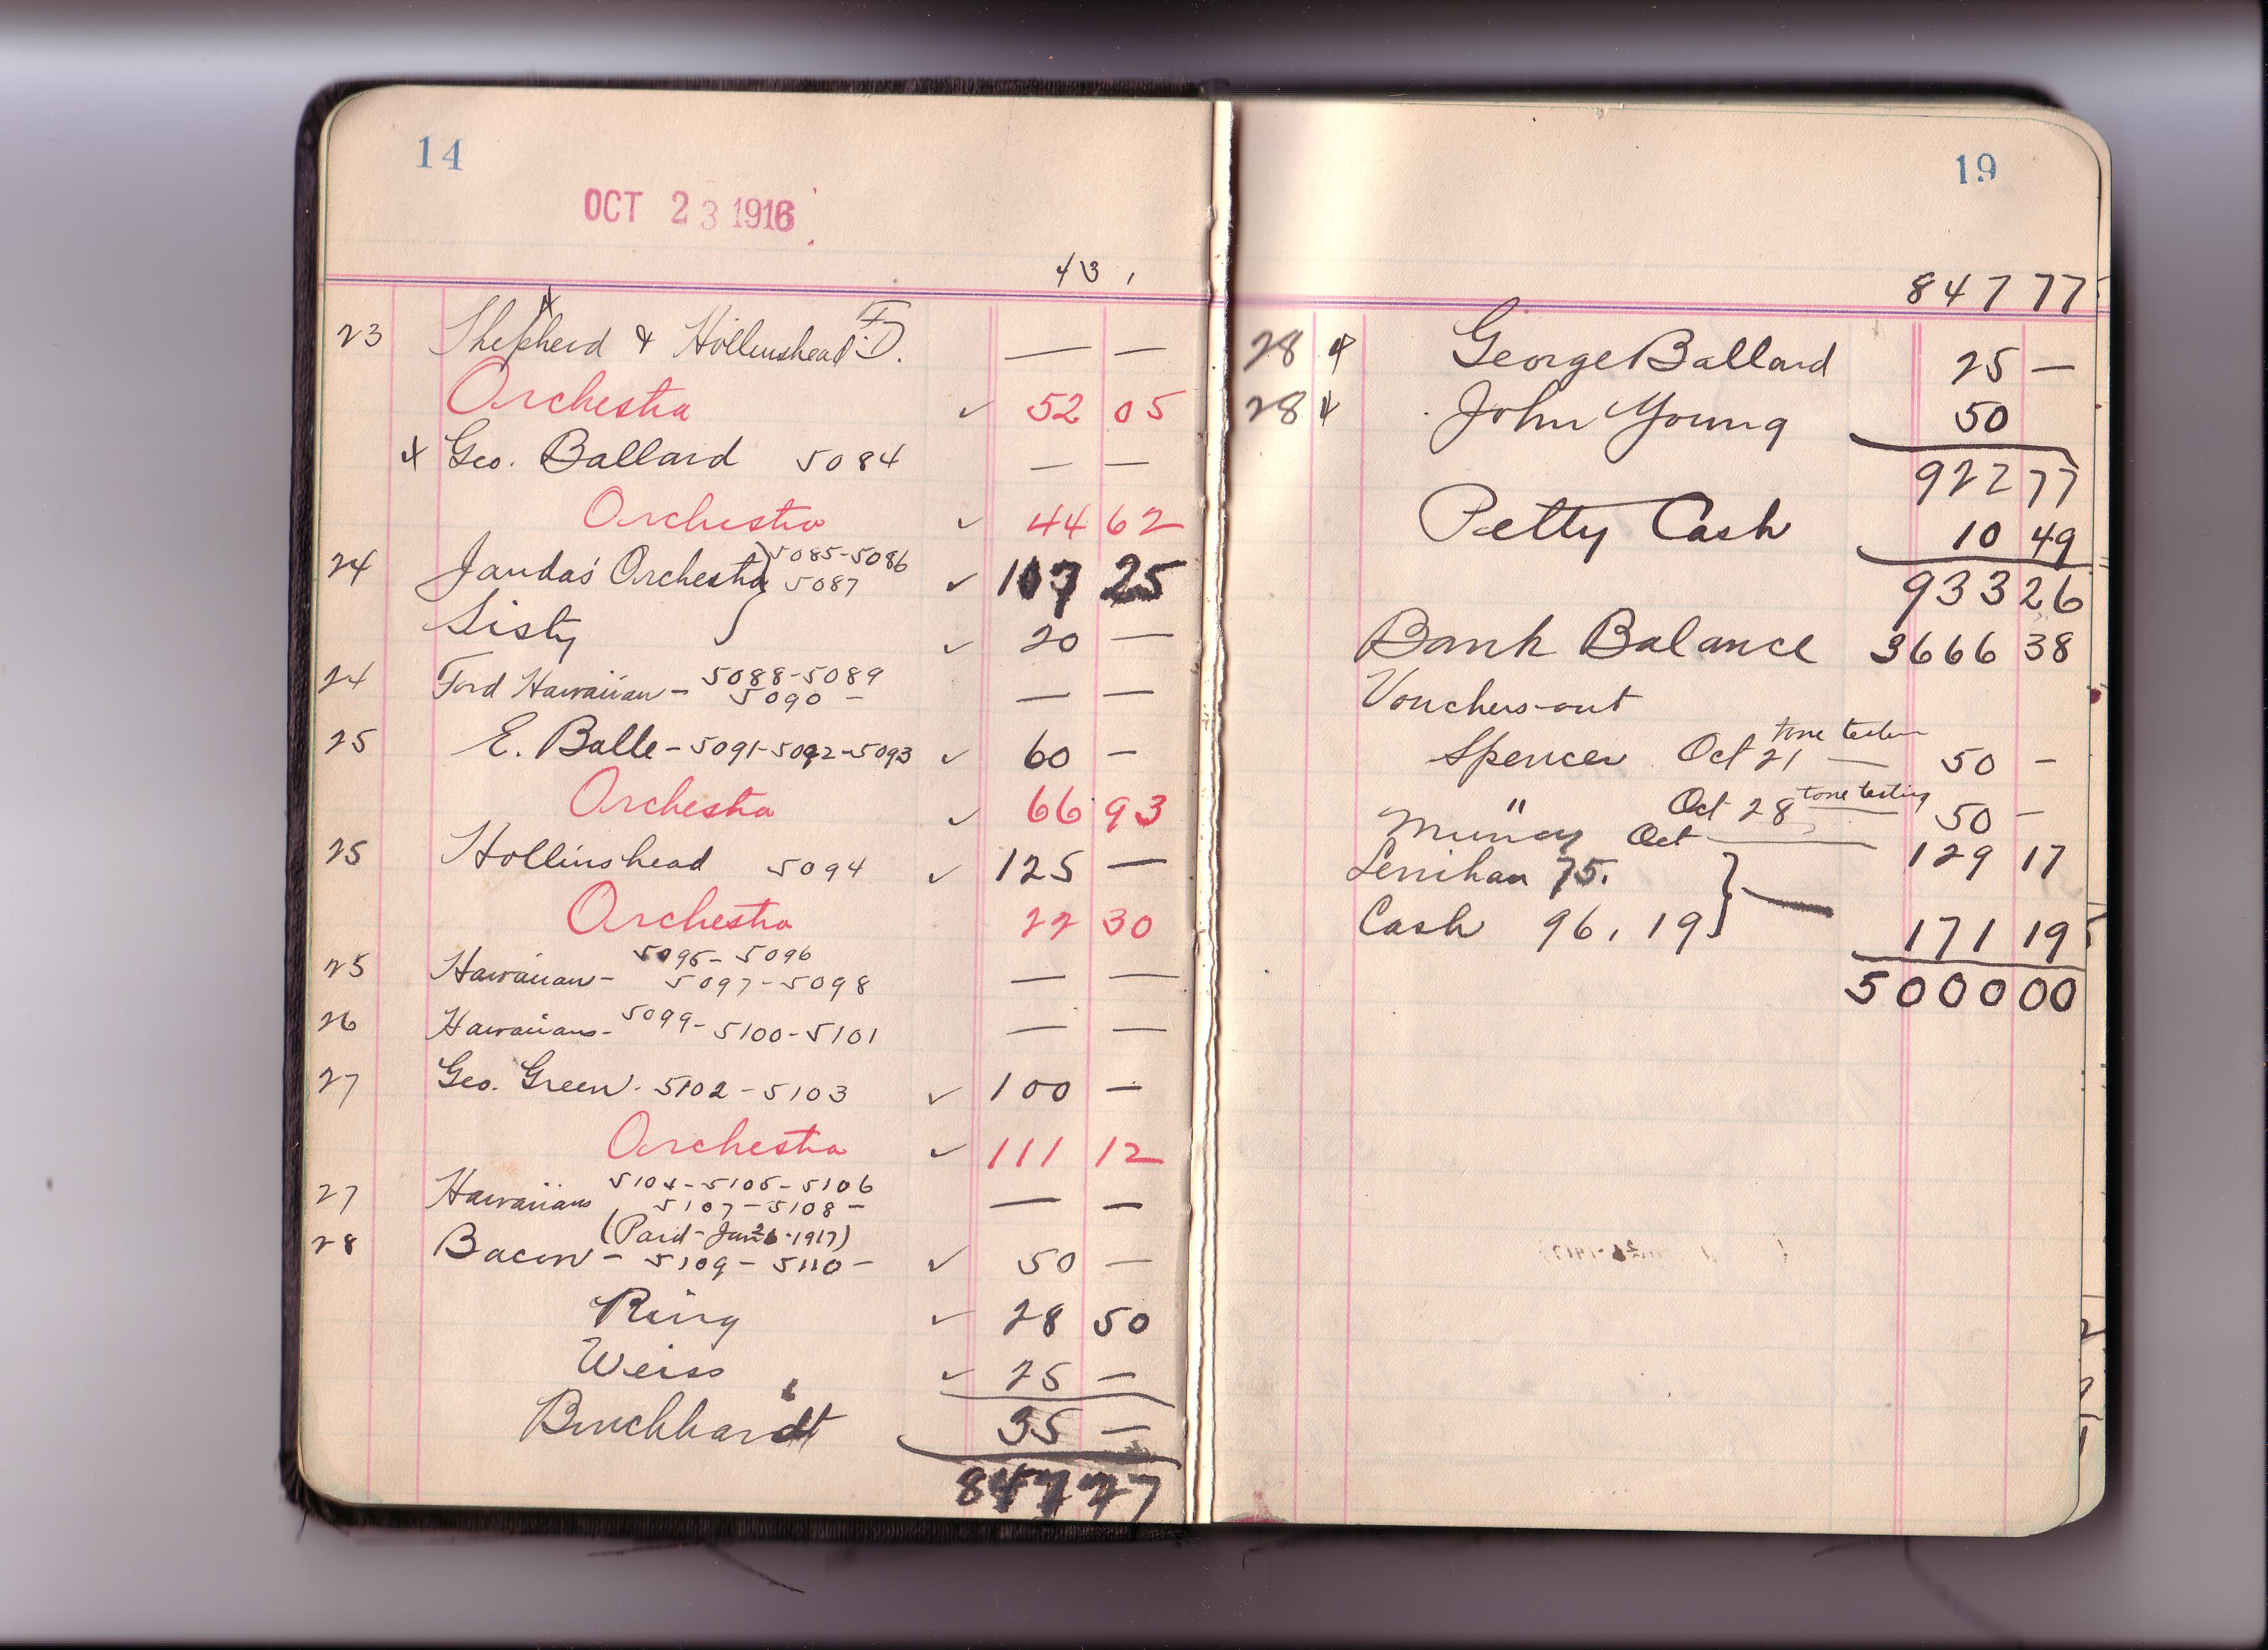 14
OCT 23 1916
431
23 Shepherd & Hollinshead F.D. — —
Orchestra ✓ 52 05
x Geo. Ballard 5084 — —
Orchestra ✓ 44 62
24 Jaudas' Orchestra } 5085-5086
5087 ✓ 107 25
Sisty ✓ 20 —
24 Ford Hawaiian - 5088-5089
5090 - — —
25 E. Balle - 5091-5092-5093 ✓ 60 —
Orchestra ✓ 66 93
25 Hollinshead 5094 ✓ 125 —
Orchestra 22 30
25 Hawaiian - 5095-5096
5097-5098 — —
26 Hawaiians - 5099-5100-5101 — —
27 Geo. Green. 5102-5103 ✓ 100 —
Orchestra ✓ 111 12
27 Hawaiians 5104-5105-5106
5107-5108- — —
(Paid-Jan 26-1917)
28 Bacon - 5109-5110- ✓ 50 —
Ring ✓ 28 50
Weiss ✓ 25 —
Burckhardt 35 —
847 77
19
847 77
28 George Ballard 25 —
28 John Young 50
922 77
Petty Cash 10 49
933 26
Bank Balance 3666 38
Vouchers-out
Spencer Oct 21 tone testing 50 —
" Oct 28 tone testing 50 —
Murray Oct 129 17
Lenihan 75.
Cash 96.19 } 171 19
5000 00